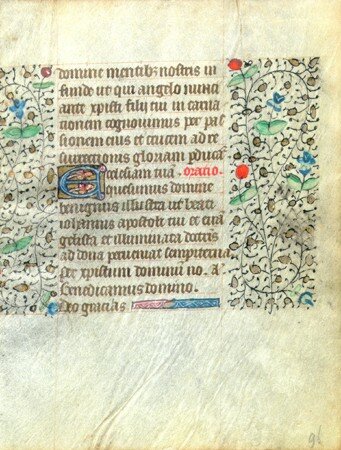 domine mentibz nostris in
funde ut qui angelo nunci
ante xpisti filij tui in carna
tionem cognovimus per pas
sionem eius et crucem ad re
surrectionis gloriam pducat
Ecclesiam tuā oratio
quesumus domine
benignus illustra ut beati
iohannis apostoli tui et euā
geliste et illuminata doctris
ad dona perveniat sempiterna
xpistum dominū no. A
Benedicamus domino.
Deo gracias
96